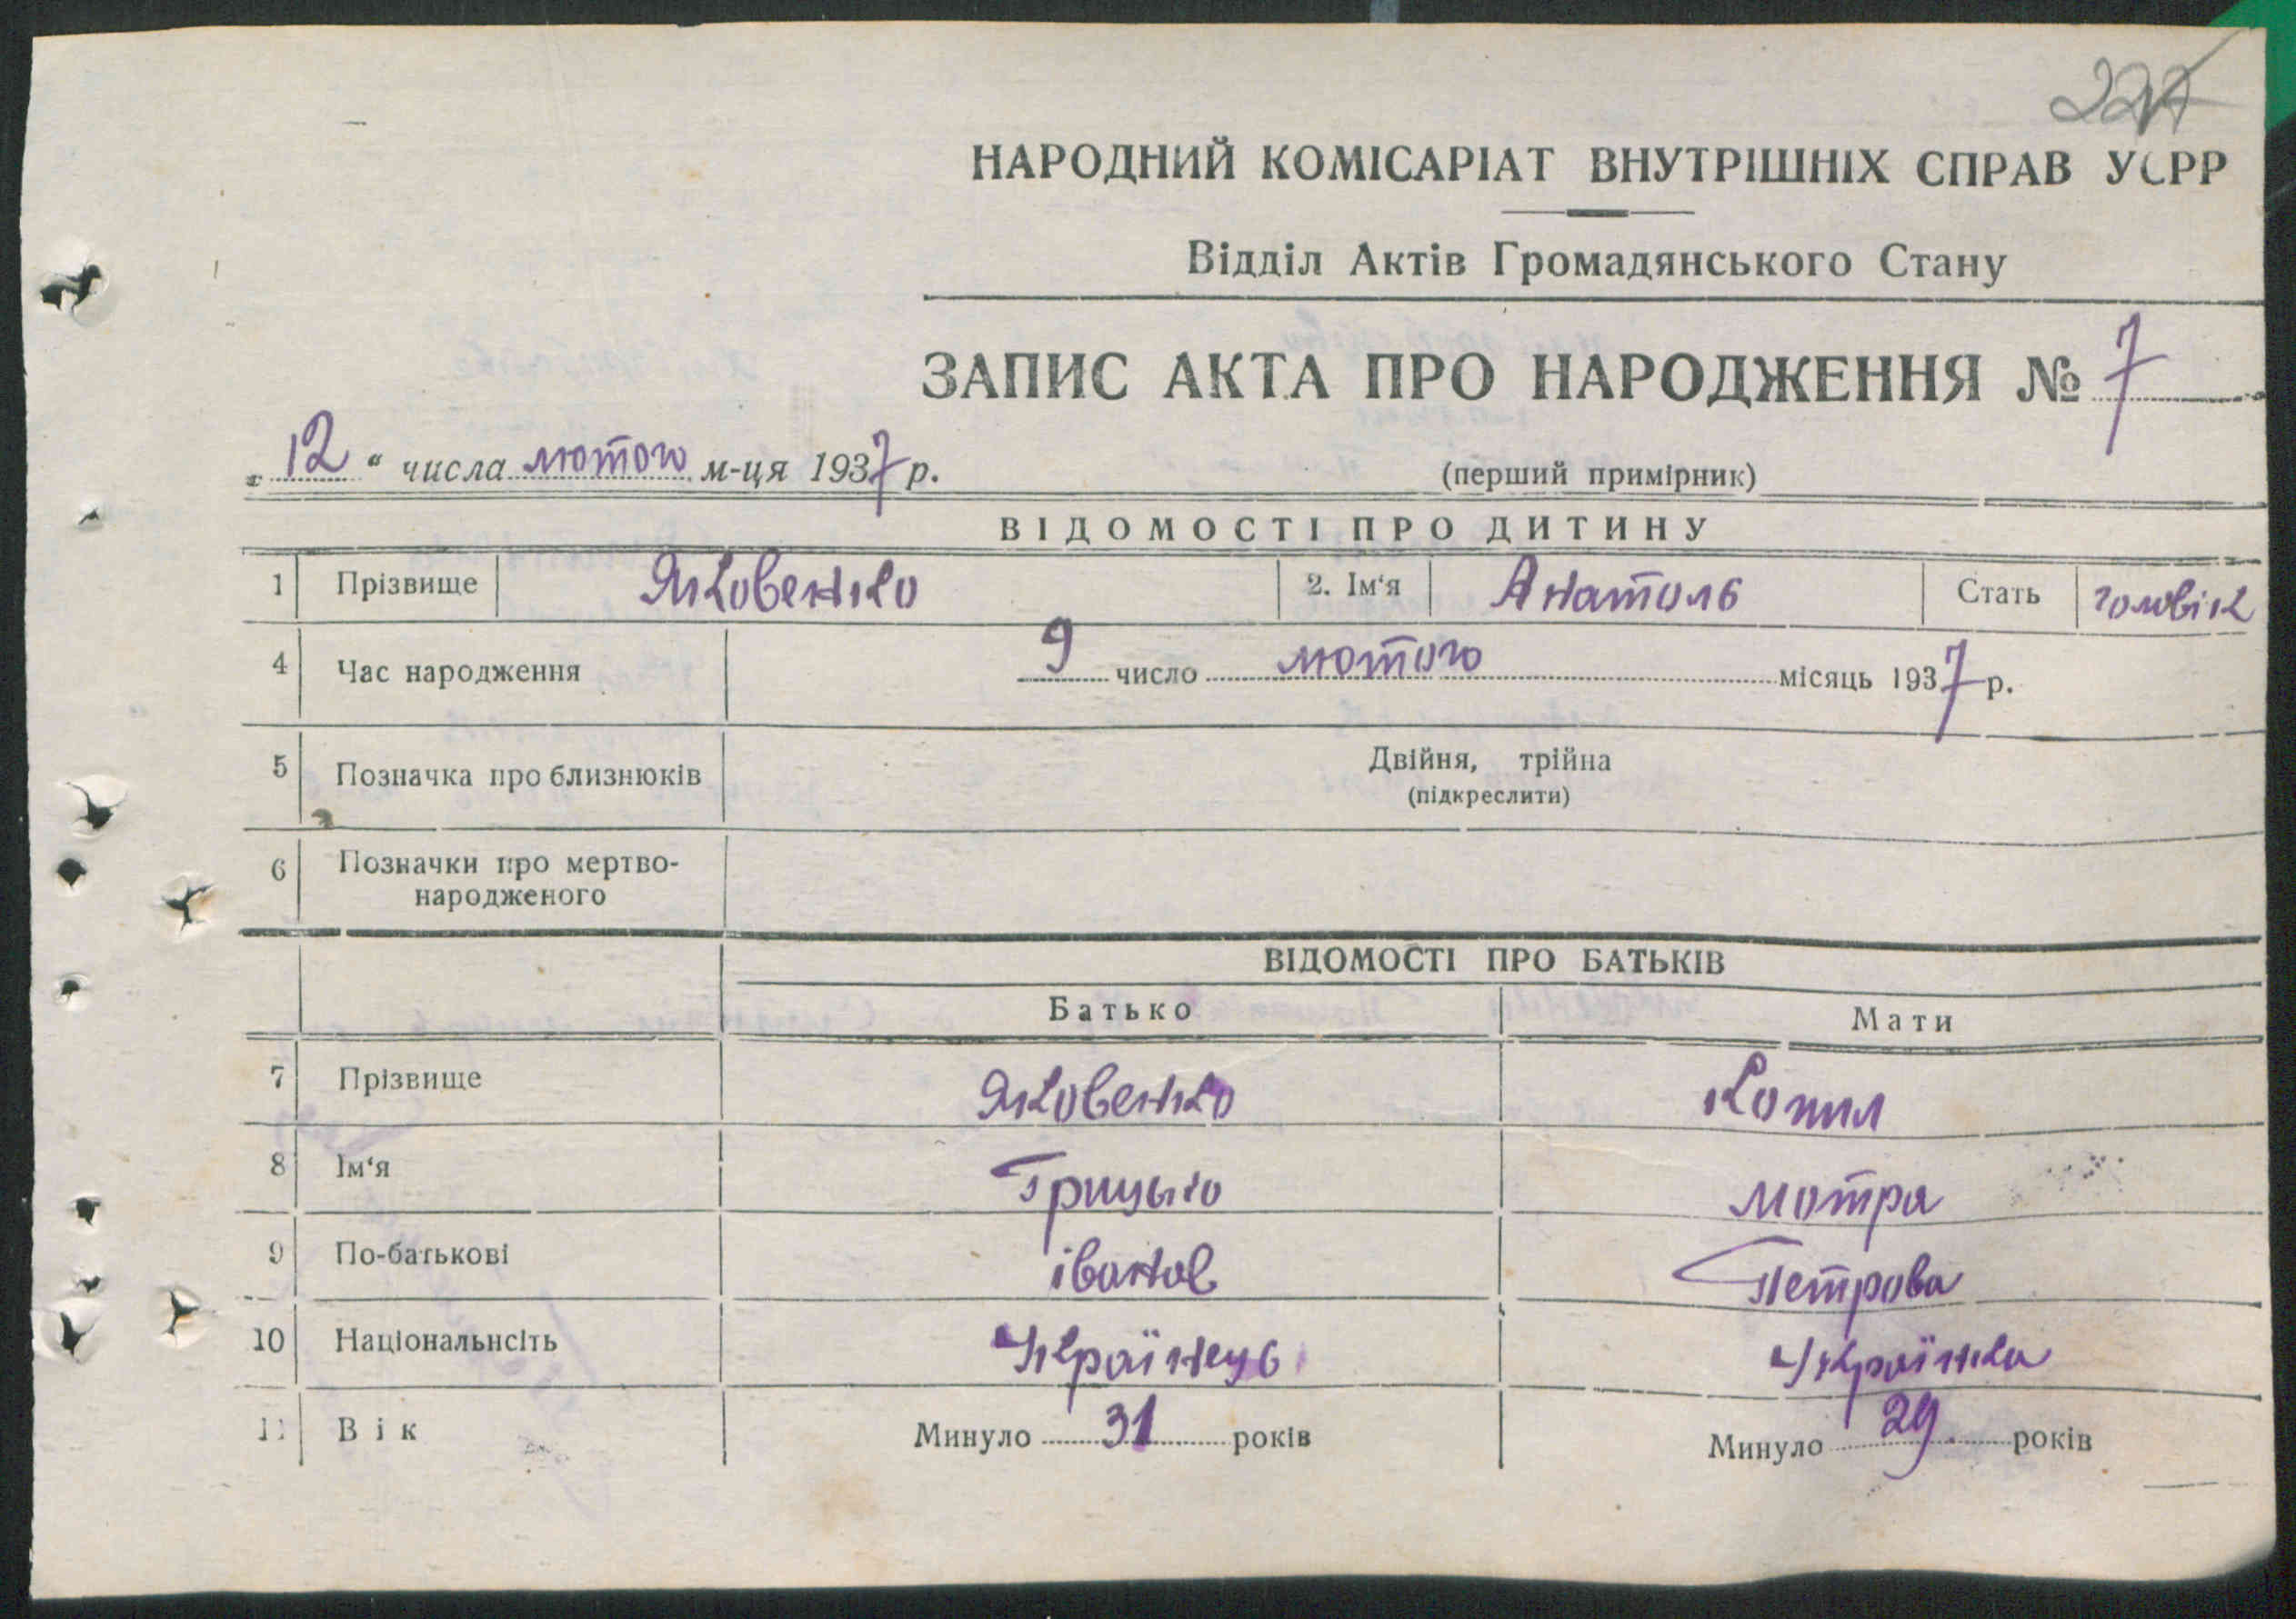 227
НАРОДНИЙ КОМІСАРІАТ ВНУТРІШНІХ СПРАВ УСРР
Відділ Актів Громадянського Стану
ЗАПИС АКТА ПРО НАРОДЖЕННЯ № 7
„ 12 “ числа лютого м-ця 1937 р. (перший примірник)
ВІДОМОСТІ ПРО ДИТИНУ
1 Прізвище Яковенко 2. Ім‘я Анатоль Стать чоловік
4 Час народження 9 число лютого місяць 1937 р.
5 Позначка про близнюків Двійня, трійна
(підкреслити)
6 Позначки про мертво-
народженого
ВІДОМОСТІ ПРО БАТЬКІВ
Батько Мати
7 Прізвище Яковенко
8 Ім‘я Грицько Мотра
9 По-батькові іванов Петрова
10 Національнсіть Українець Українка
11 Вік Минуло 31 років Минуло 29 років